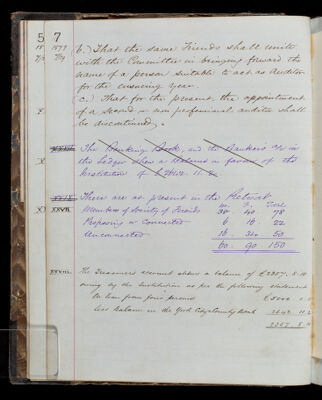 57
18 1877
7/9 7/9
b.) That the same Friends shall unite
with the Committee in bringing forward the
name of a person suitable to act as Auditor
for the ensuing year.
c.) That for the present, the appointment
of a second or non professional auditor shall
be discontinued.
The Banking Book, and the Bankers a/c in
the Ledger shew a balance in favour of the
Institution of £2642. 11. 2.
XXVII. There are at present in the Retreat
M. F. Total
Members of Society of Friends 38 40 78
Proposing or Connected 6 16 22
Unconnected 16 34 50
60 90 150
XXVIII. The Treasurers account shews a balance of £2357. 8. 10
owing by the Institution as per the following statement
On loan from four persons £5000
less Balance in the York City & County Bank 2642 11 2
2357 8 10